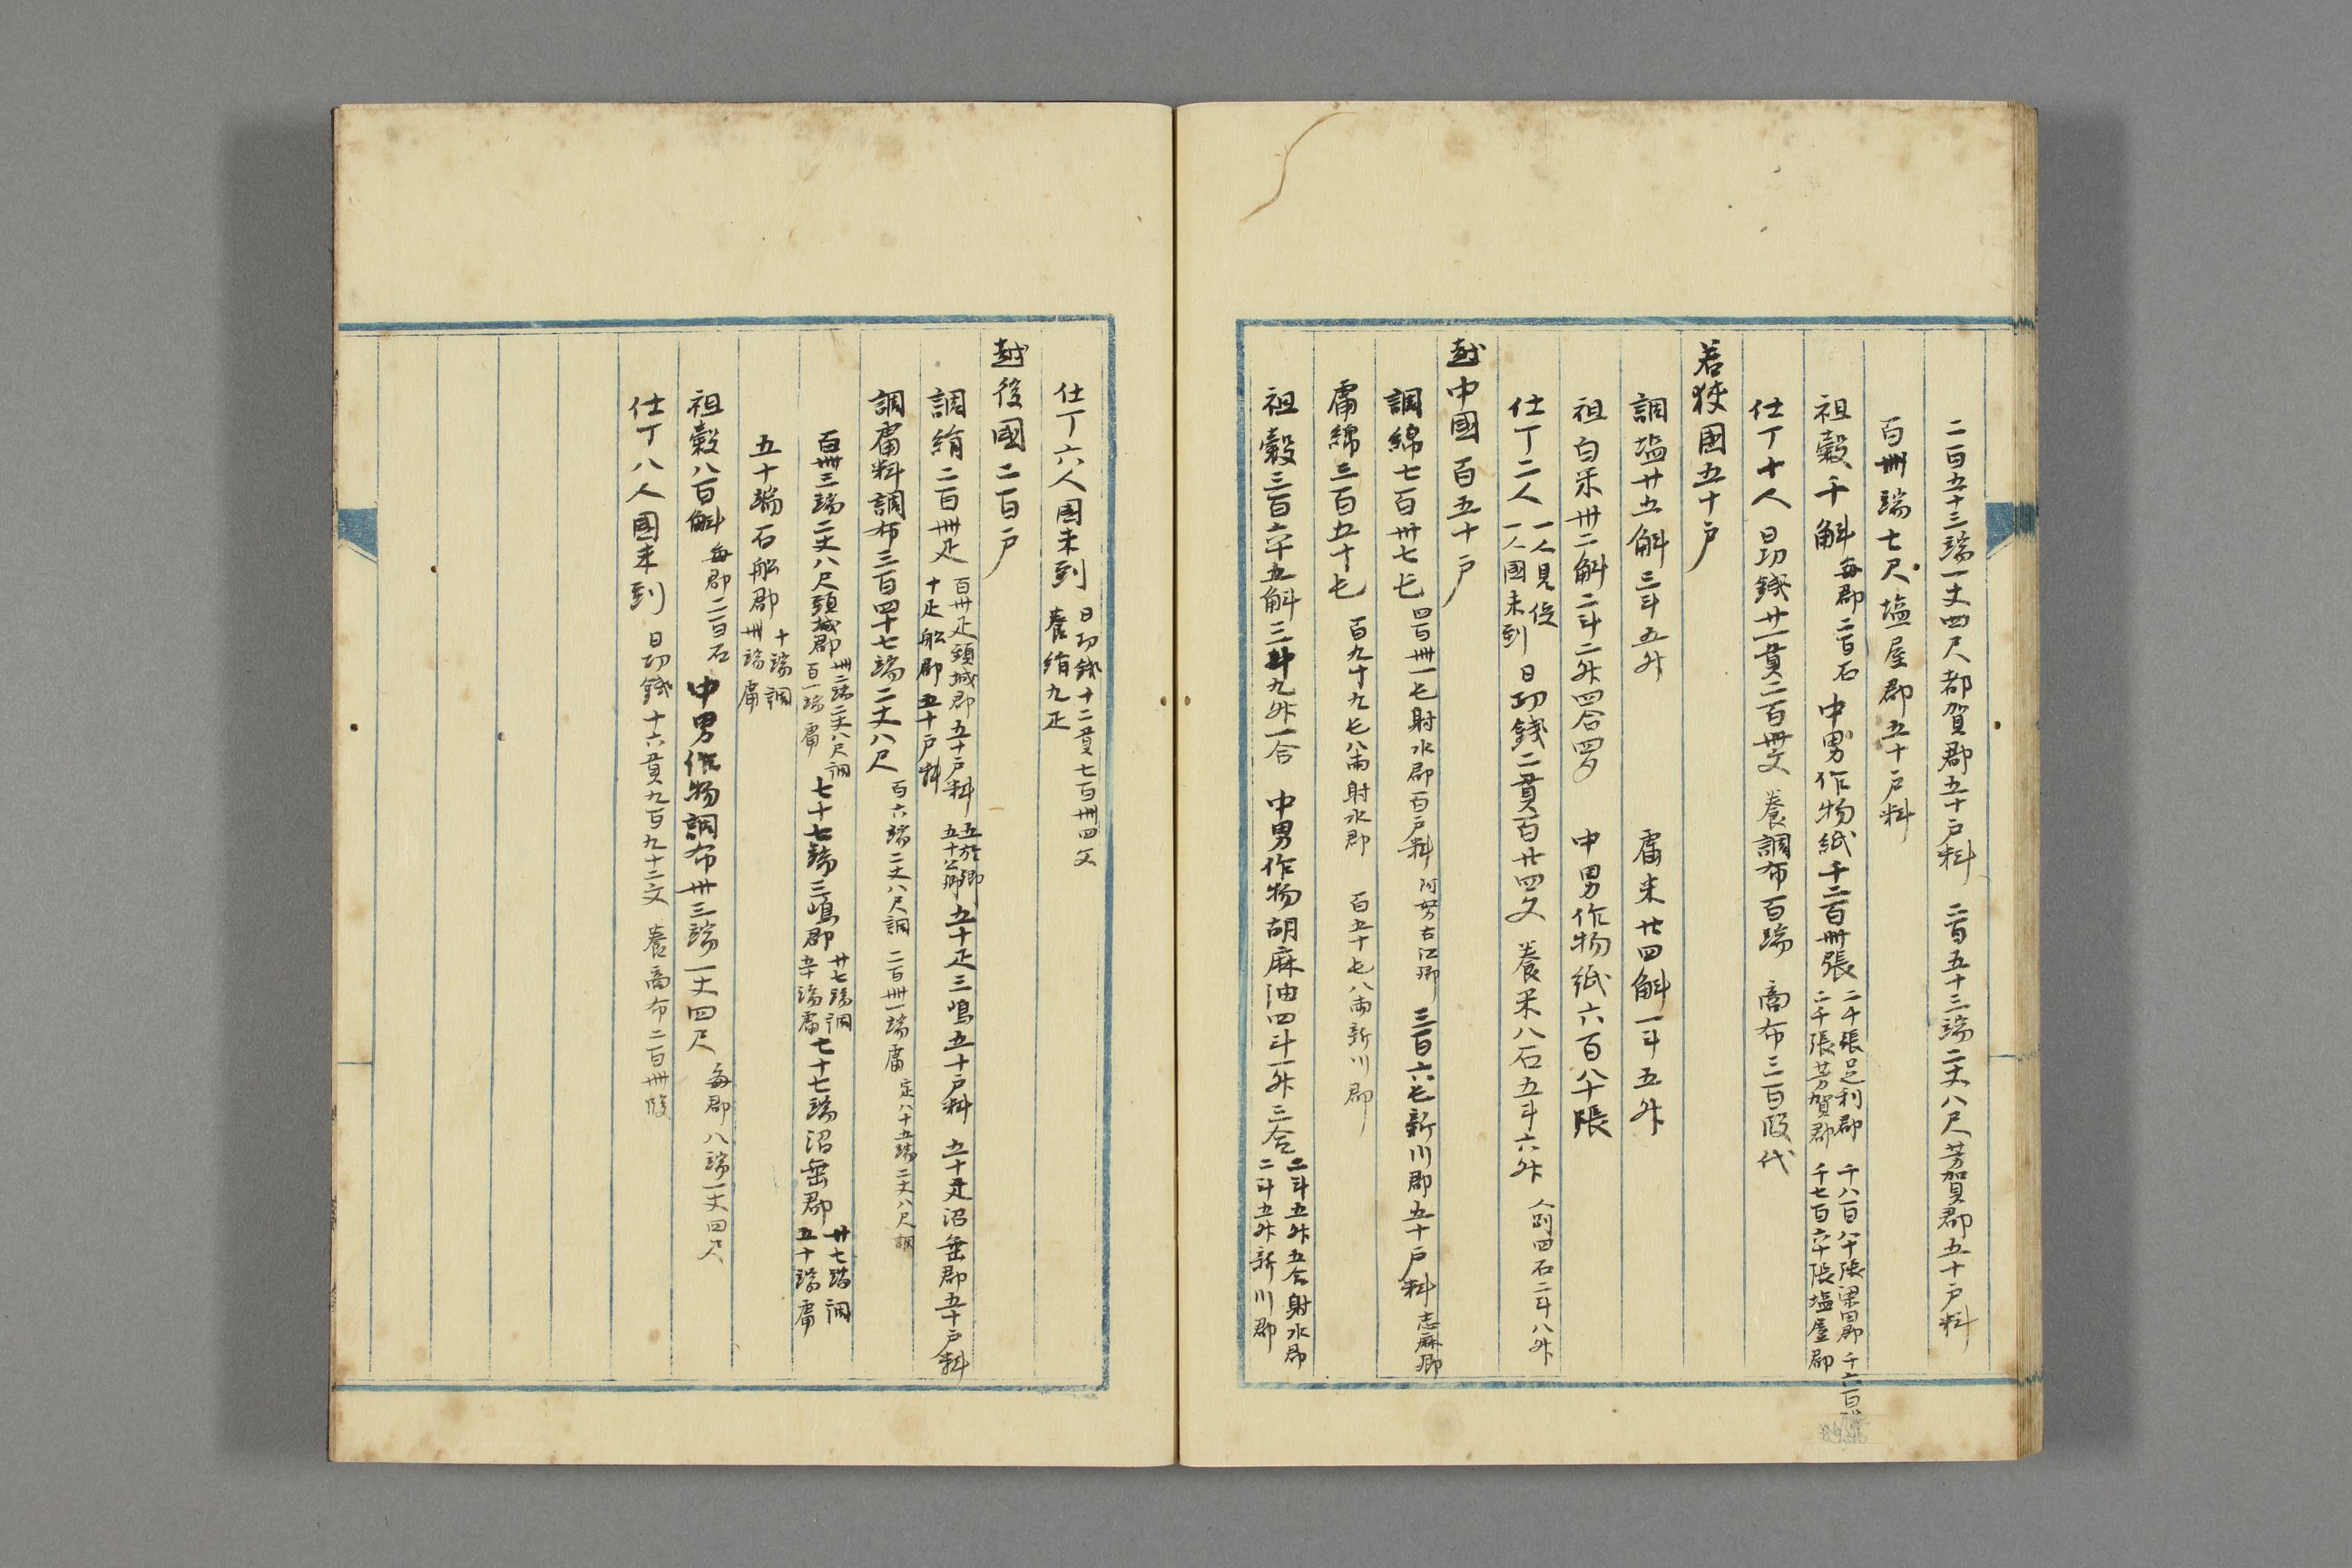 二百五十三端一丈四尺都賀郡五十戸料 二百五十三端二丈八尺芳賀郡五十戸料
百卌端七尺塩屋郡五十戸料
祖穀千斛 毎郡二百石 中男作物紙千二百卌張 二千張足利郡 千八百八十張梁田郡 千六百
二千張芳賀郡 千七百六十張塩屋郡
仕丁十人 日功錢廿一貫二百卌文 養調布百端 商布三百段代
若狭國五十戸
調塩廿五斛三斗五升 庸米廿四斛一斗五升
祖白米卅二斛二斗二升四合四勺 中男作物紙六百八十張
仕丁二人 一人見役
一人國未到 日功錢二貫百廿四文 養米八石五斗六升 人別四石二斗八升
越中國百五十戸
調綿七百卅七屯 四百卌一屯射水郡百戸料 阿努古江郷 三百六屯新川郡五十戸料 志麻郷
庸綿三百五十屯 百九十九屯八両射水郡 百五十屯八両新川郡
祖穀三百六十五斛三斗九升一合 中男作物胡麻油四斗一升三合 二斗五升五合射水郡
二斗五升新川郡
仕丁六人國未到 日功錢十二貫七百卌四文
養絹九疋
越後國二百戸
調絹二百卌疋 百卅疋頸城郡五十戸料 五於郷
十疋船郡五十戸料 五十公郷 五十疋三嶋五十戸料 五十疋沼垂郡五十戸料
調庸料調布三百四十七端二丈八尺 百六端二丈八尺調 二百卌一端庸 定八十五端二丈八尺調
百卌三端二丈八尺頸城郡 卌二端二丈八尺調
百一端庸 七十七端三嶋郡 廿七端調
五十端庸 七十七端沼垂郡 廿七端調
五十端庸
五十端石船郡 十端調
卌端庸
祖穀八百斛 毎郡二百石 中男作物調布卅三端一丈四尺 毎郡八端一丈四尺
仕丁八人國未到 日功錢十六貫九百九十二文 養商布二百卌段